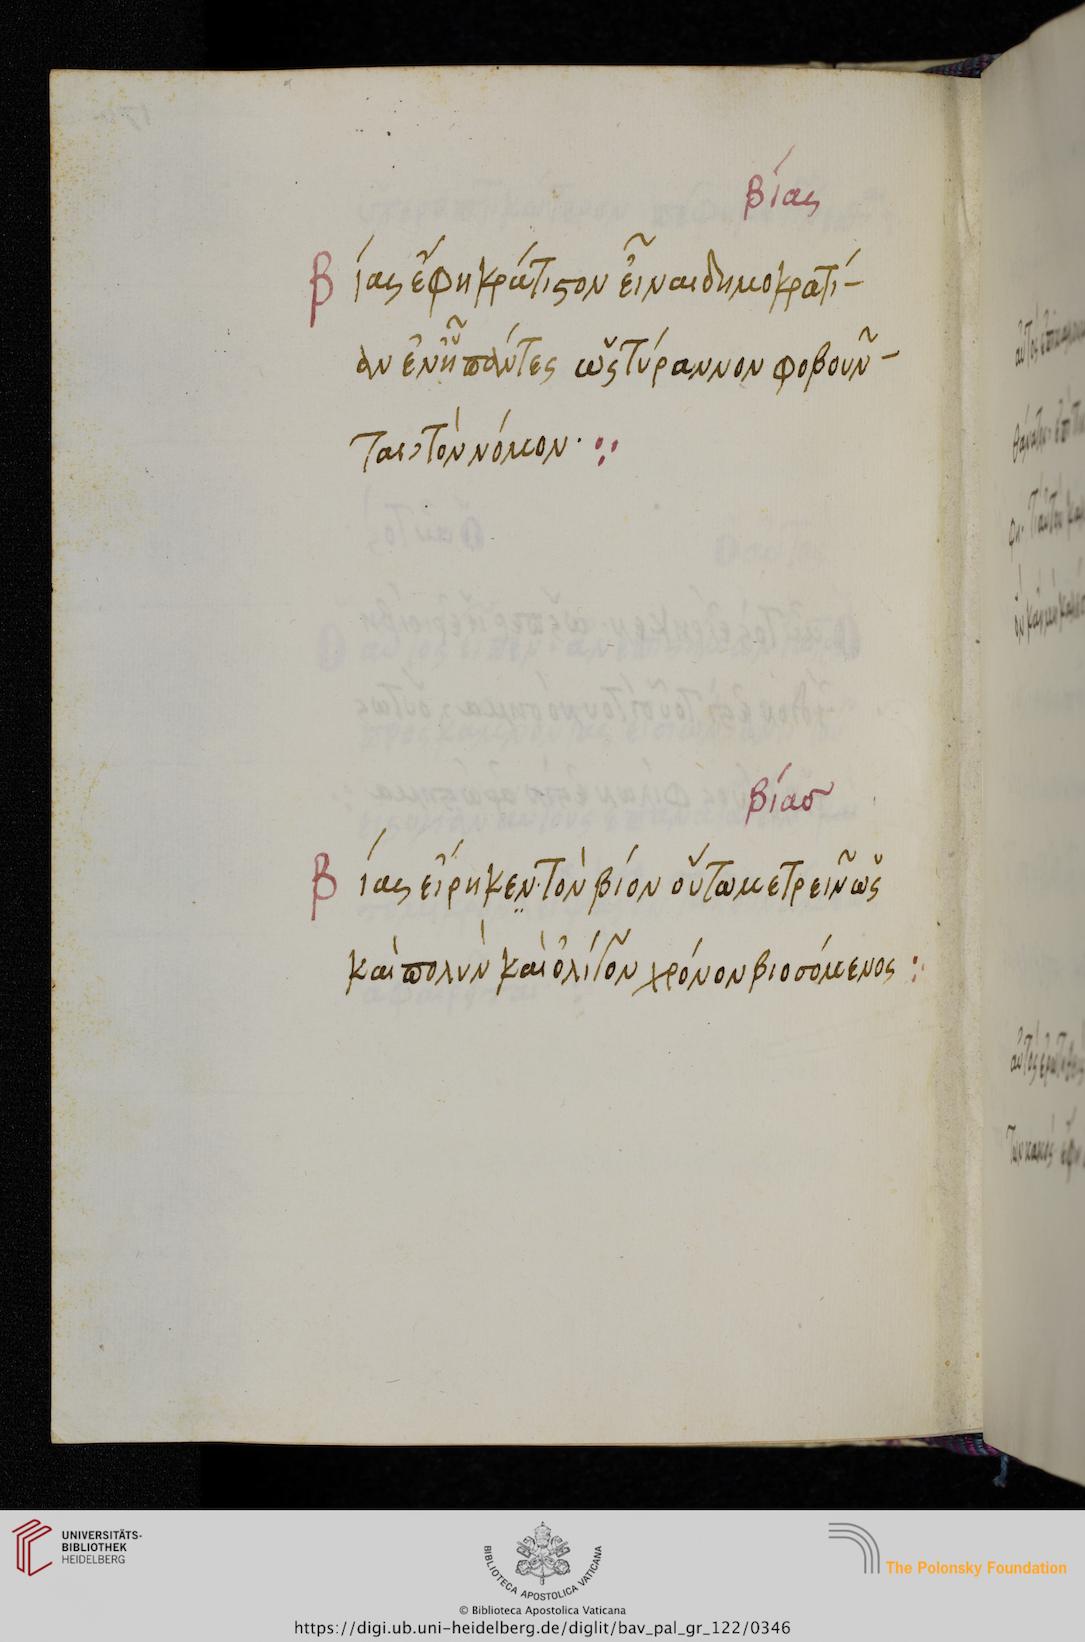 βίας
Βίας ἔφη κράτιστον εἶναι δημοκρατί-
αν ἐν ᾗ πάντες ὡς τύραννον φοβοῦν-
ται, τὸν νόμον· :·
βίασ
Βίας εἴρηκεν· τὸν βίον οὕτω μετρεῖν ὡς
καὶ πολὺν καὶ ὀλίγον χρόνον βιοσόμενος :·
UNIVERSITÄTS-
BIBLIOTHEK
HEIDELBERG
BIBLIOTECA APOSTOLICA VATICANA
The Polonsky Foundation
© Biblioteca Apostolica Vaticana
https://digi.ub.uni-heidelberg.de/diglit/bav_pal_gr_122/0346